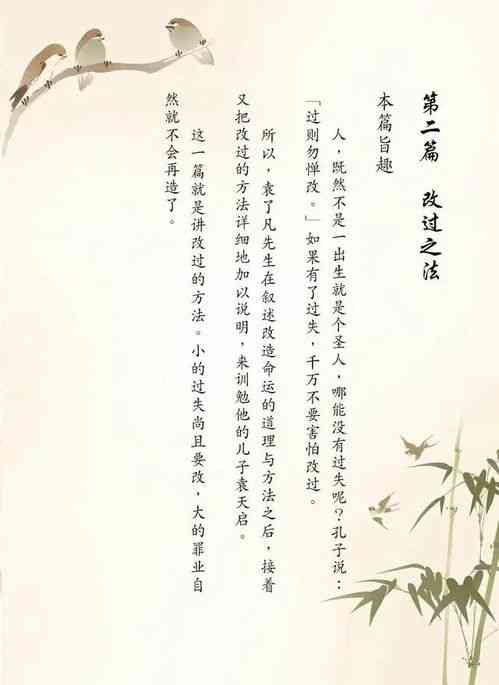 第二篇　改过之法
本篇旨趣
人，既然不是一出生就是个圣人，哪能没有过失呢？孔子说：
「过则勿惮改。」如果有了过失，千万不要害怕改过。
所以，袁了凡先生在叙述改造命运的道理与方法之后，接着
又把改过的方法详细地加以说明，来训勉他的儿子袁天启。
这一篇就是讲改过的方法。小的过失尚且要改，大的罪业自
然就不会再造了。